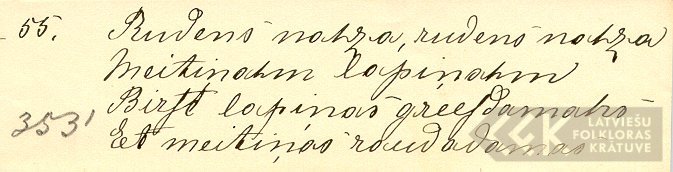 55. Rudens nahza, rudens nahza
Meitinahm lapinahm
Birst lapiņas greesdamahs
3531 Et meitiņas raudadamas
LATVIEŠU
FOLKLORAS
KRĀTUVE